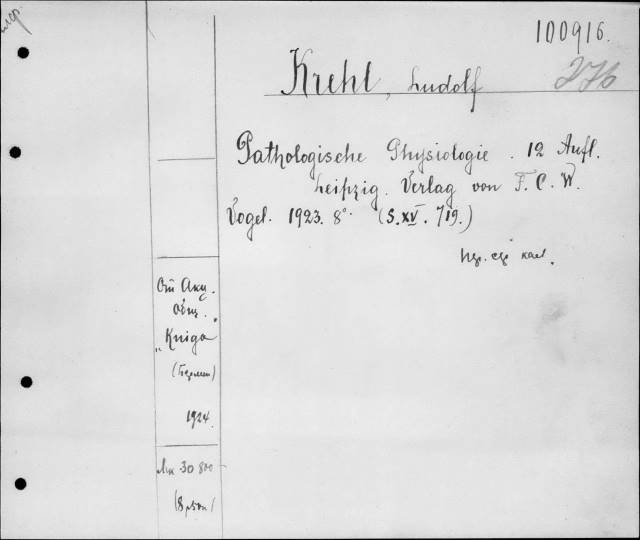 100916.
Krehl, Ludolf
276
Pathologische Physiologie. 12 Aufl.
Leipzig. Verlag von F. C. W.
Vogel. 1923. 8°. (S. XV. 719.)
От Акц.
общ.
„Kniga"
(Берлин)
1924.
Мк 30 800